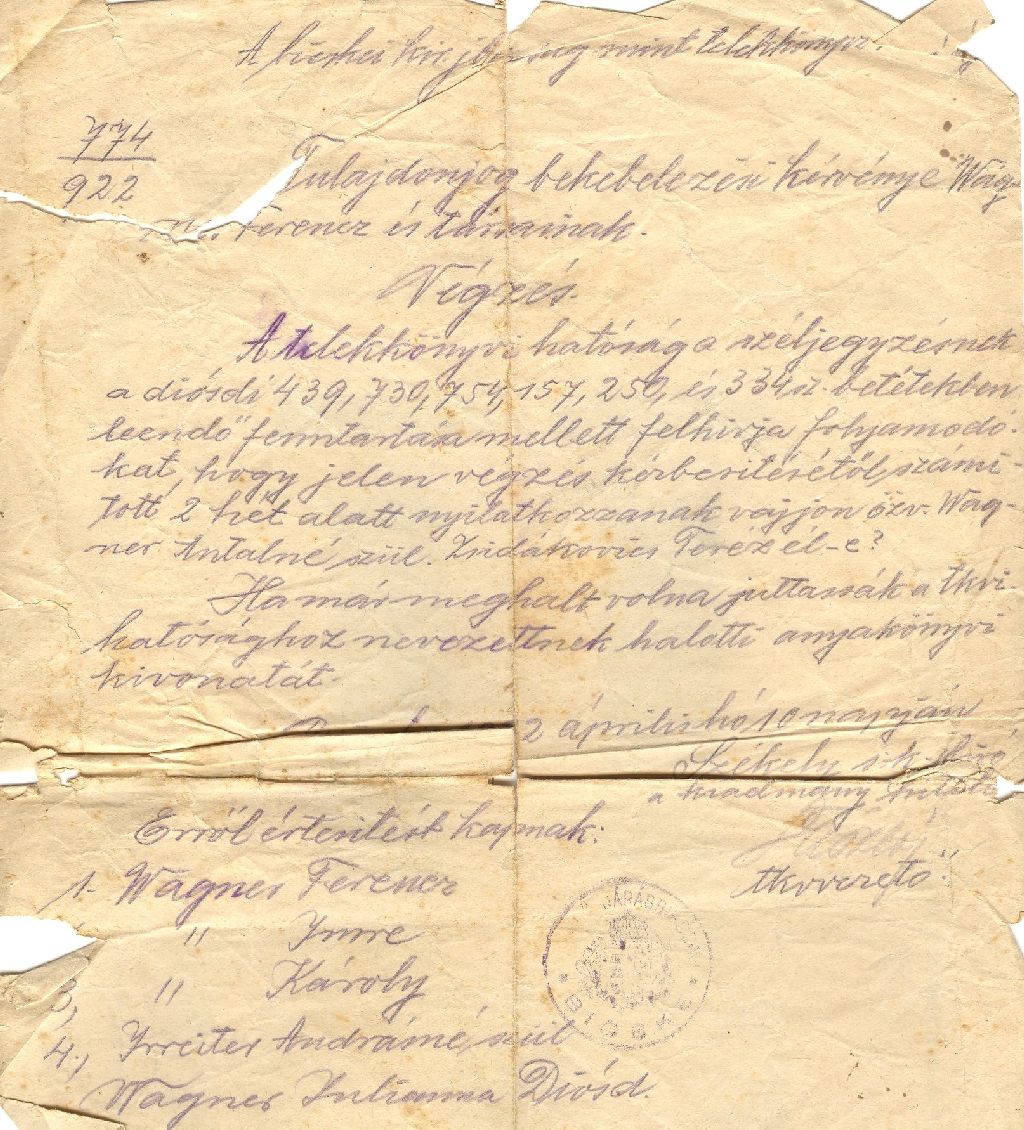 A bicskei kir. járásbíróság mint telekkönyvi
774
922
Tulajdonjog bekebelezési kérvénye Wág-
ner Ferencz és társainak.
Végzés.
A telekkönyvi hatóság a széljegyzésnek
a diósdi 439, 730, 754, 157, 250, és 334 sz. betétekben
leendő fenntartása mellett felhivja folyamodó-
kat, hogy jelen végzés kézbesitésétől számi-
tott 2 hét alatt nyilatkozzanak vajjon özv. Wág-
ner Antalné szül. Zsidákovics Teréz él-e?
Ha már meghalt volna juttassák a tkvi
hatósághoz nevezettnek halotti anyakönyvi
kivonatát.
2 április hó 10 napján
Székely s. k. biró
a kiadmány hiteléül
tkvvezető.
Erről értesitést kapnak:
1. Wágner Ferencz
" Imre
3, " Károly
4., Irreiter Andrásné, szül
Wagner Julianna Diósd.
BICSKE